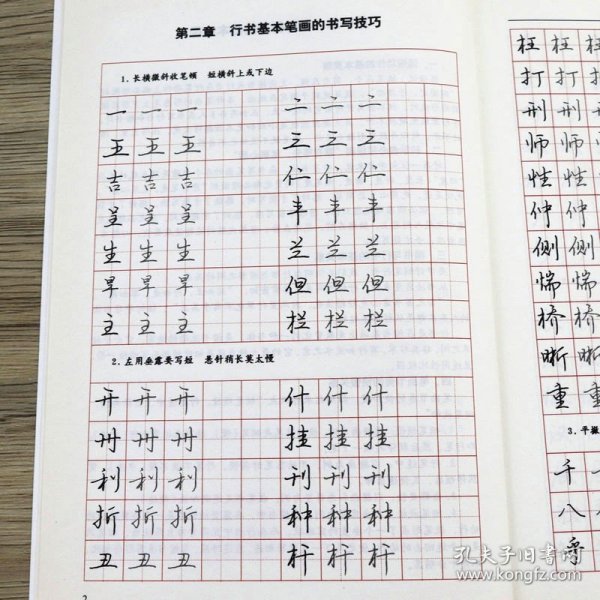 第二章 行书基本笔画的书写技巧
1.长横微斜收笔顿 短横斜上或下边
一 一 一 二 二 二
王 王 王 三 三 三
吉 吉 吉 仁 仁 仁
呈 呈 呈 丰 丰 丰
生 生 生 兰 兰 兰
早 早 早 但 但 但
主 主 主 栏 栏 栏
2.左用垂露要写短 悬针稍长莫太慢
开 开 开 什 什 什
卅 卅 卅 挂 挂 挂
利 利 利 刊 刊 刊
折 折 折 种 种 种
丑 丑 丑 杆 杆 杆
2
枉 枉 枉
打 打 打
刑 刑 刑
师 师 师
性 性 性
仲 仲 仲
侧 侧
惴 惴
桥 桥
晰 晰
重 重
3.平撇
千
八
舜
孔夫子旧书网
www.kongfz.com